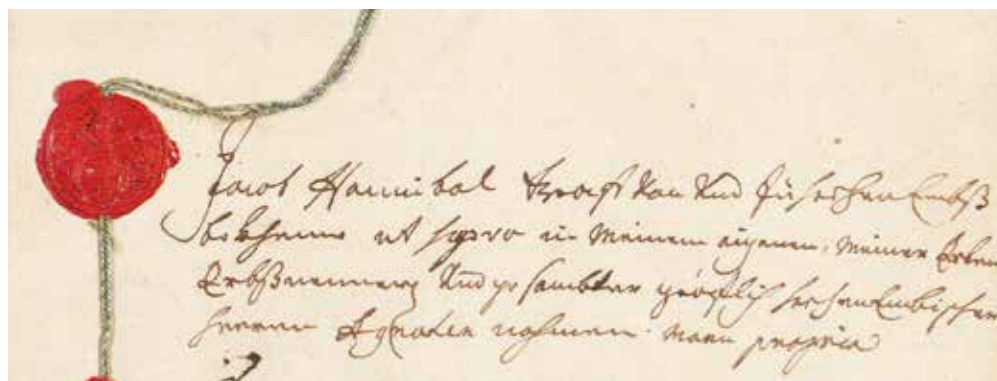 Jacob Hannibal Graff von Und zu hochen Embß
bekhenne ut supra in Meinem aigenen, Meiner Erben
Erbßnemmern Und gesambter gräfflich hochenEmbischen
herren Agnaten nahmen. Manu propria